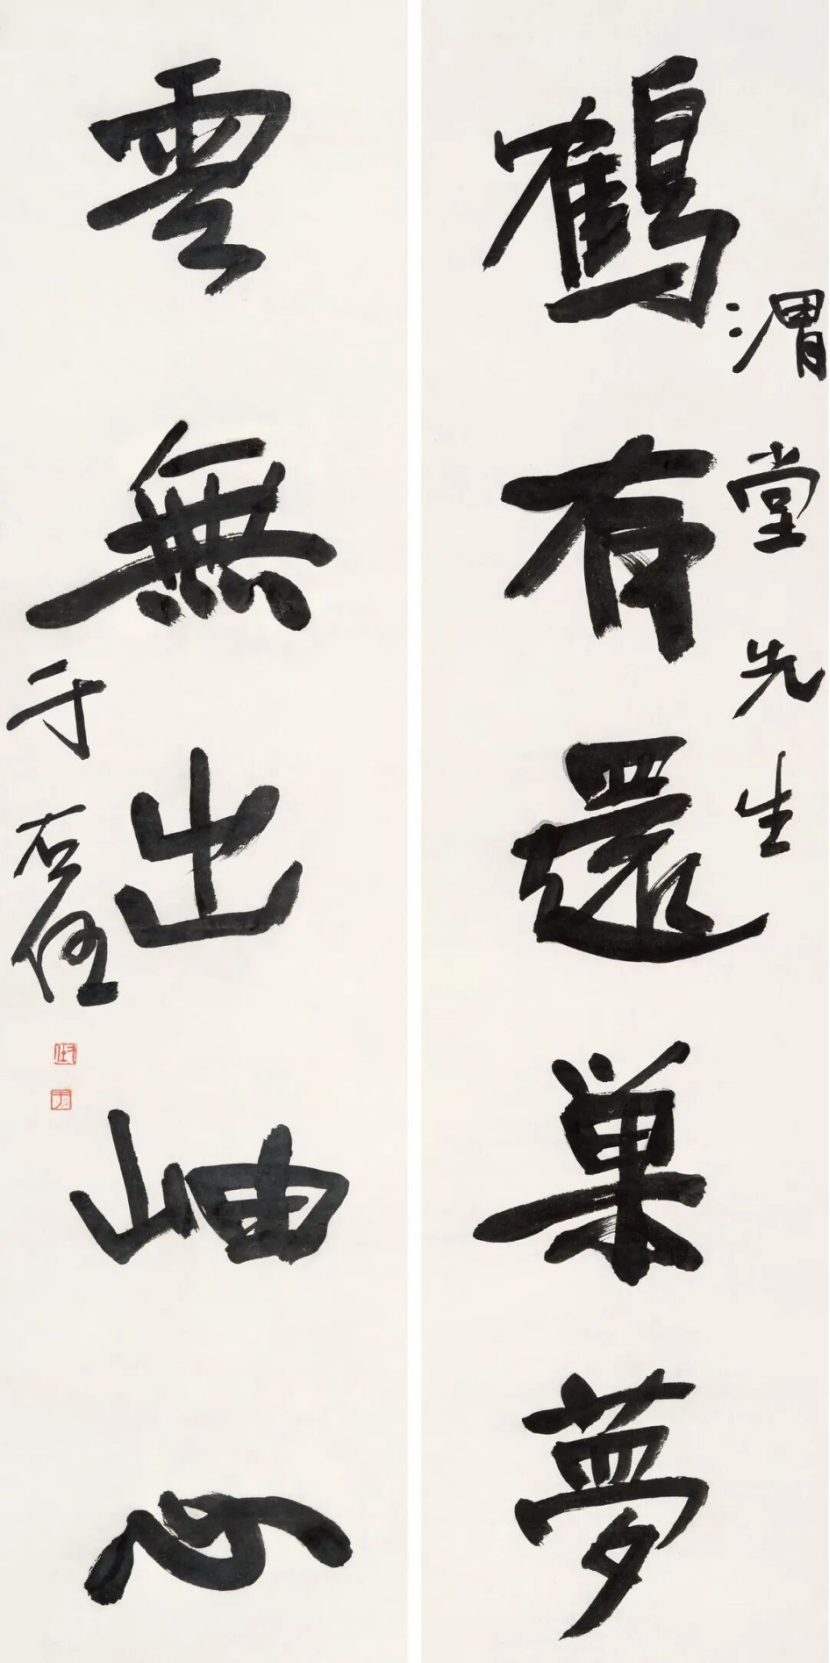 鶴有還巢夢
渭堂先生
雲無出岫心
于右任